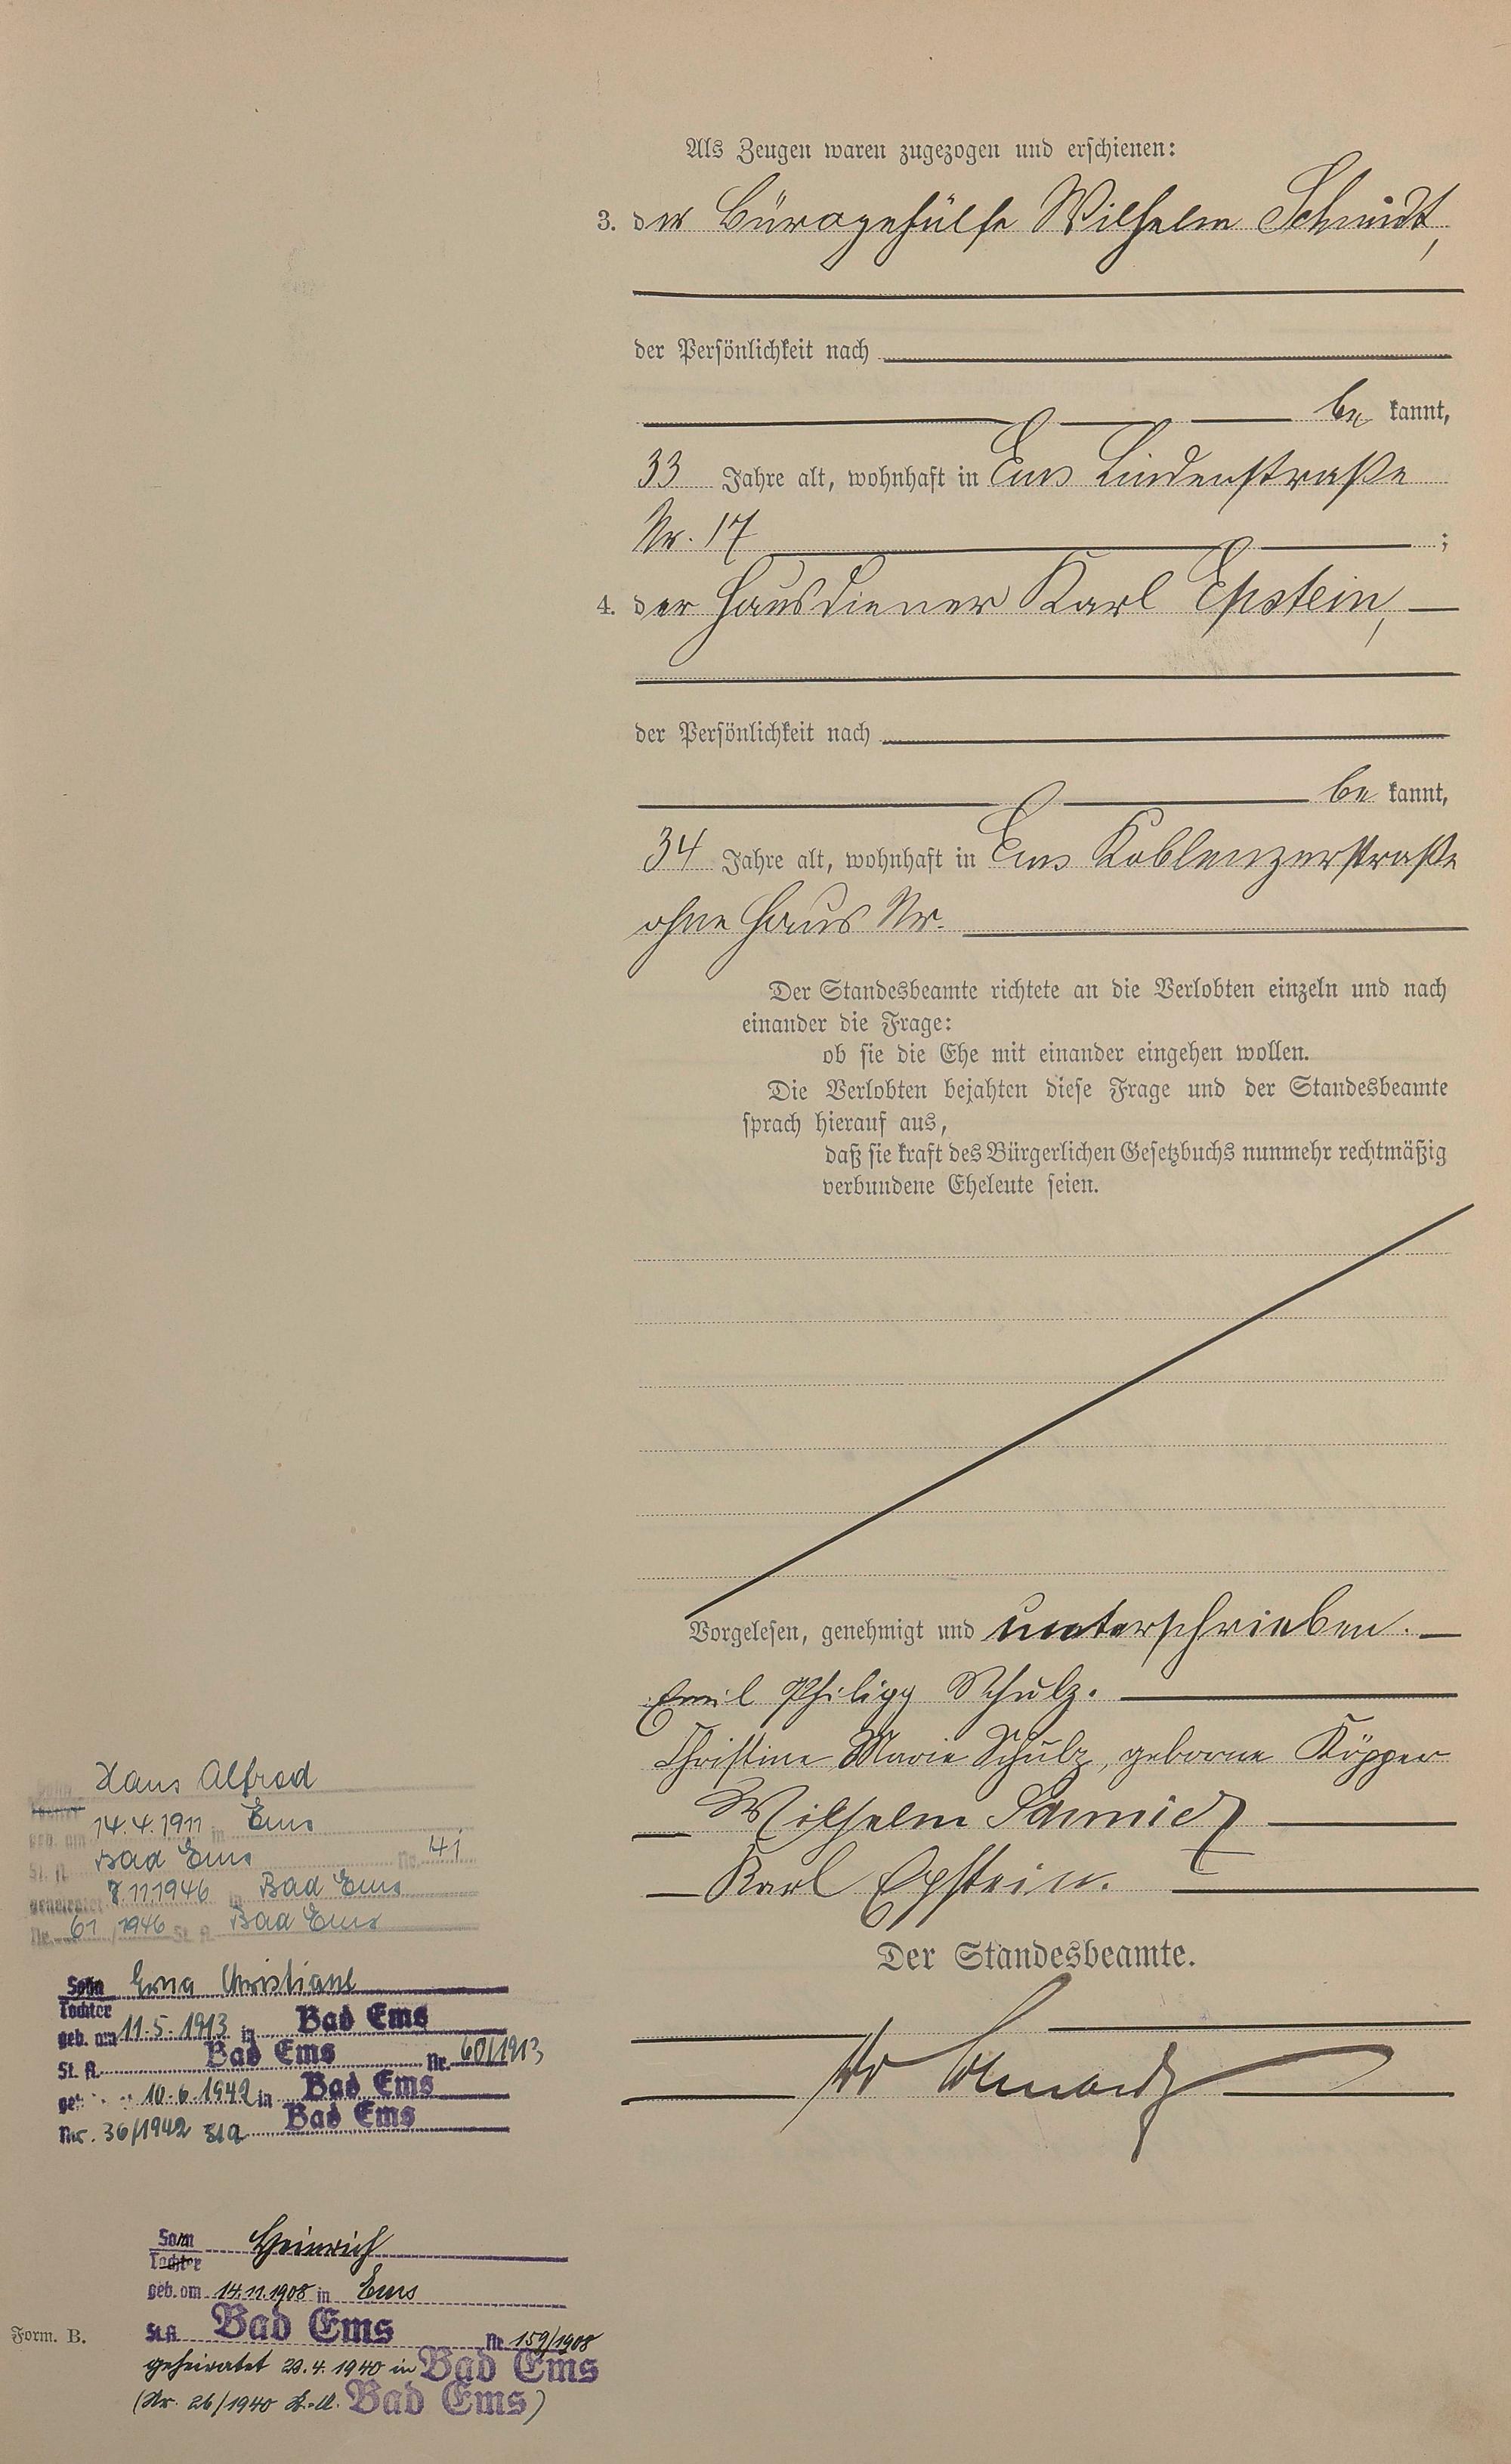 Als Zeugen waren zugezogen und erschienen:
3. der Bürogehülfe Wilhelm Schmidt,
der Persönlichkeit nach
be kannt,
33 Jahre alt, wohnhaft in Ems Lindenstraße
Nr. 17 ;
4. der Hausdiener Karl Epstein,
der Persönlichkeit nach
be kannt,
34 Jahre alt, wohnhaft in Ems Koblenzerstraße
ohne Haus Nr.
Der Standesbeamte richtete an die Verlobten einzeln und nach
einander die Frage:
ob sie die Ehe mit einander eingehen wollen.
Die Verlobten bejahten diese Frage und der Standesbeamte
sprach hierauf aus,
daß sie kraft des Bürgerlichen Gesetzbuchs nunmehr rechtmäßig
verbundene Eheleute seien.
Vorgelesen, genehmigt und unterschrieben.
Emil Philipp Schulz.
Christine Marie Schulz, geborne Köpper
Wilhelm Schmidt
Karl Epstein.
Der Standesbeamte.
Sohn Hans Alfred
Tochter
geb. am 14.4.1911 in Ems
St. A. Bad Ems Nr. 41
geheiratet 7.11.1946 in Bad Ems
Nr. 61 / 1946 St. A. Bad Ems
Sohn Erna Christiane
Tochter
geb. am 11.5.1913 in Bad Ems
St. A. Bad Ems Nr. 60/1913
geh. 10.6.1942 in Bad Ems
Nr. 36/1942 StA Bad Ems
Sohn Heinrich
Tochter
geb. am 14.11.1908 in Ems
St.A. Bad Ems Nr. 159/1908
geheiratet 23.4.1940 in Bad Ems
(Nr. 26/1940 St.-A. Bad Ems)
Form. B.